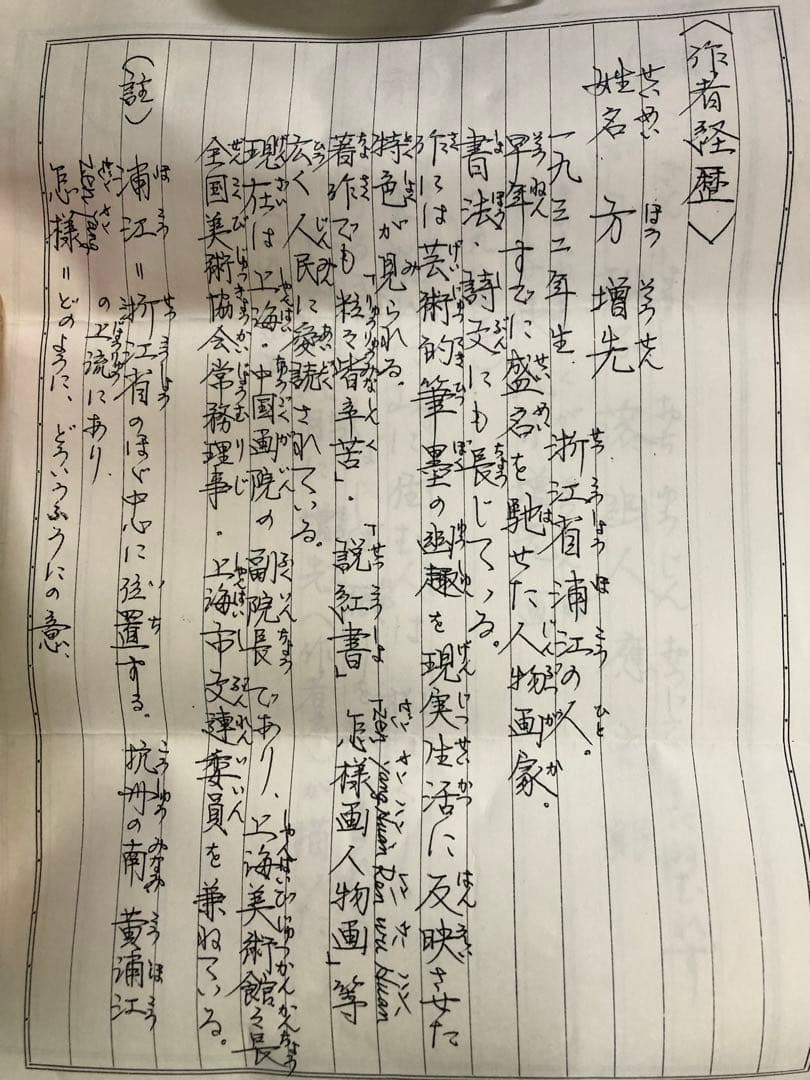 〈作者経歴〉
姓名 方増先
一九三一年生 浙江省浦江の人。
早年すでに盛名を馳せた人物画家。
書法、詩文にも長じている。
作には芸術的筆墨の幽趣を現実生活に反映させた
特色が見られる。
著作でも「粒々皆辛苦」・「説紅書」 怎様画人物画」等
広く人民に愛読されている。
現在は上海・中国画院の副院長であり、上海美術館々長
全国美術協会常務理事・上海市文連委員を兼ねている。
(註)浦江=浙江省のほゞ中心に位置する。杭州の南 黄浦江
の上流にあり
怎様=どのように、どういうふうにの意、